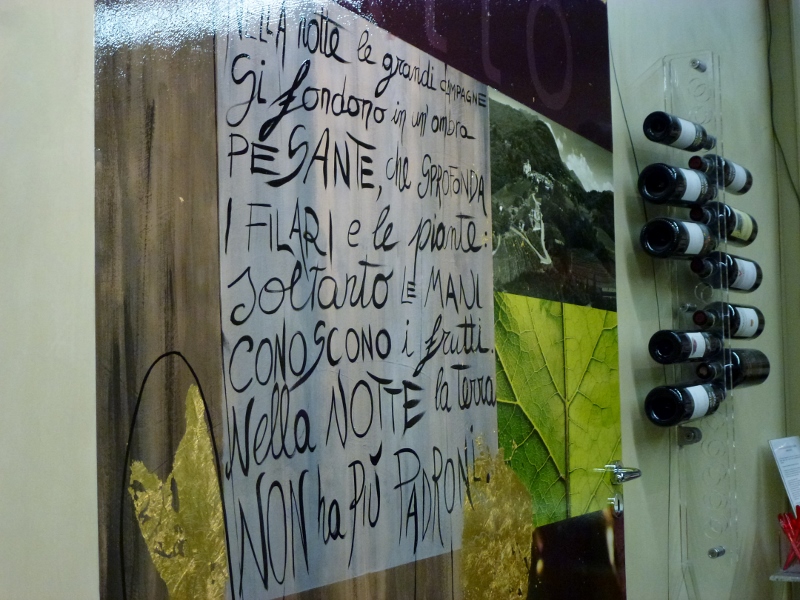 NELLA notte le grandi CAMPAGNE
si fondono in un'ombra
PESANTE, che SPROFONDA
I FILARI e le piante:
soltanto LE MANI
CONOSCONO i frutti.
Nella NOTTE la terra
NON ha PIÙ PADRONI.